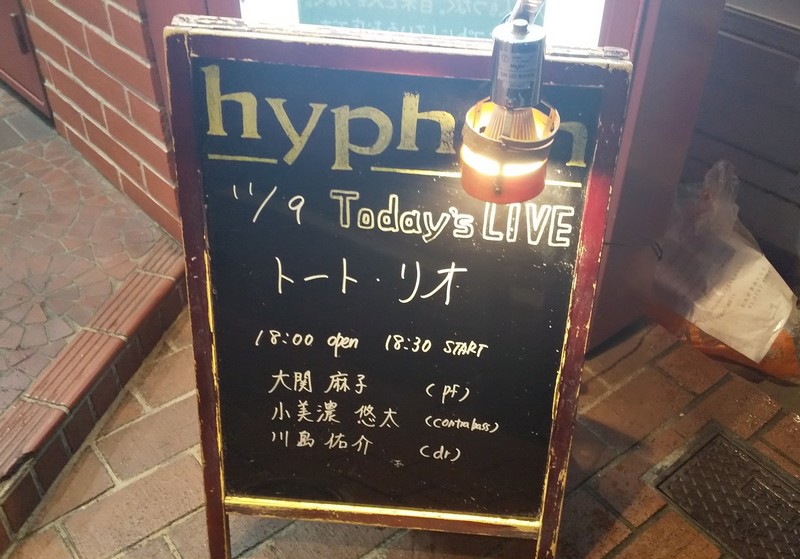 hyphen
11/9 Today's LIVE
トート・リオ
18:00 open 18:30 START
大関 麻子 (pf)
小美濃 悠太 (contrabass)
川島 佑介 (dr)